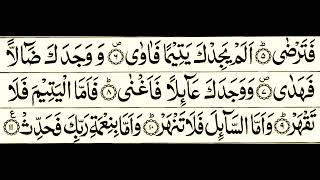 فَتَرْضٰى ﴿٥﴾ اَلَمْ يَجِدْكَ يَتِيْمًا فَاٰوٰى ﴿٦﴾ وَ وَجَدَكَ ضَآلًّا
فَهَدٰى ﴿٧﴾ وَوَجَدَكَ عَآئِلًا فَاَغْنٰى ﴿٨﴾ فَاَمَّا الْيَتِيْمَ فَلَا
تَقْهَرْ ﴿٩﴾ وَاَمَّا السَّآئِلَ فَلَا تَنْهَرْ ﴿١٠﴾ وَاَمَّا بِنِعْمَةِ رَبِّكَ فَحَدِّثْ ﴿١١﴾